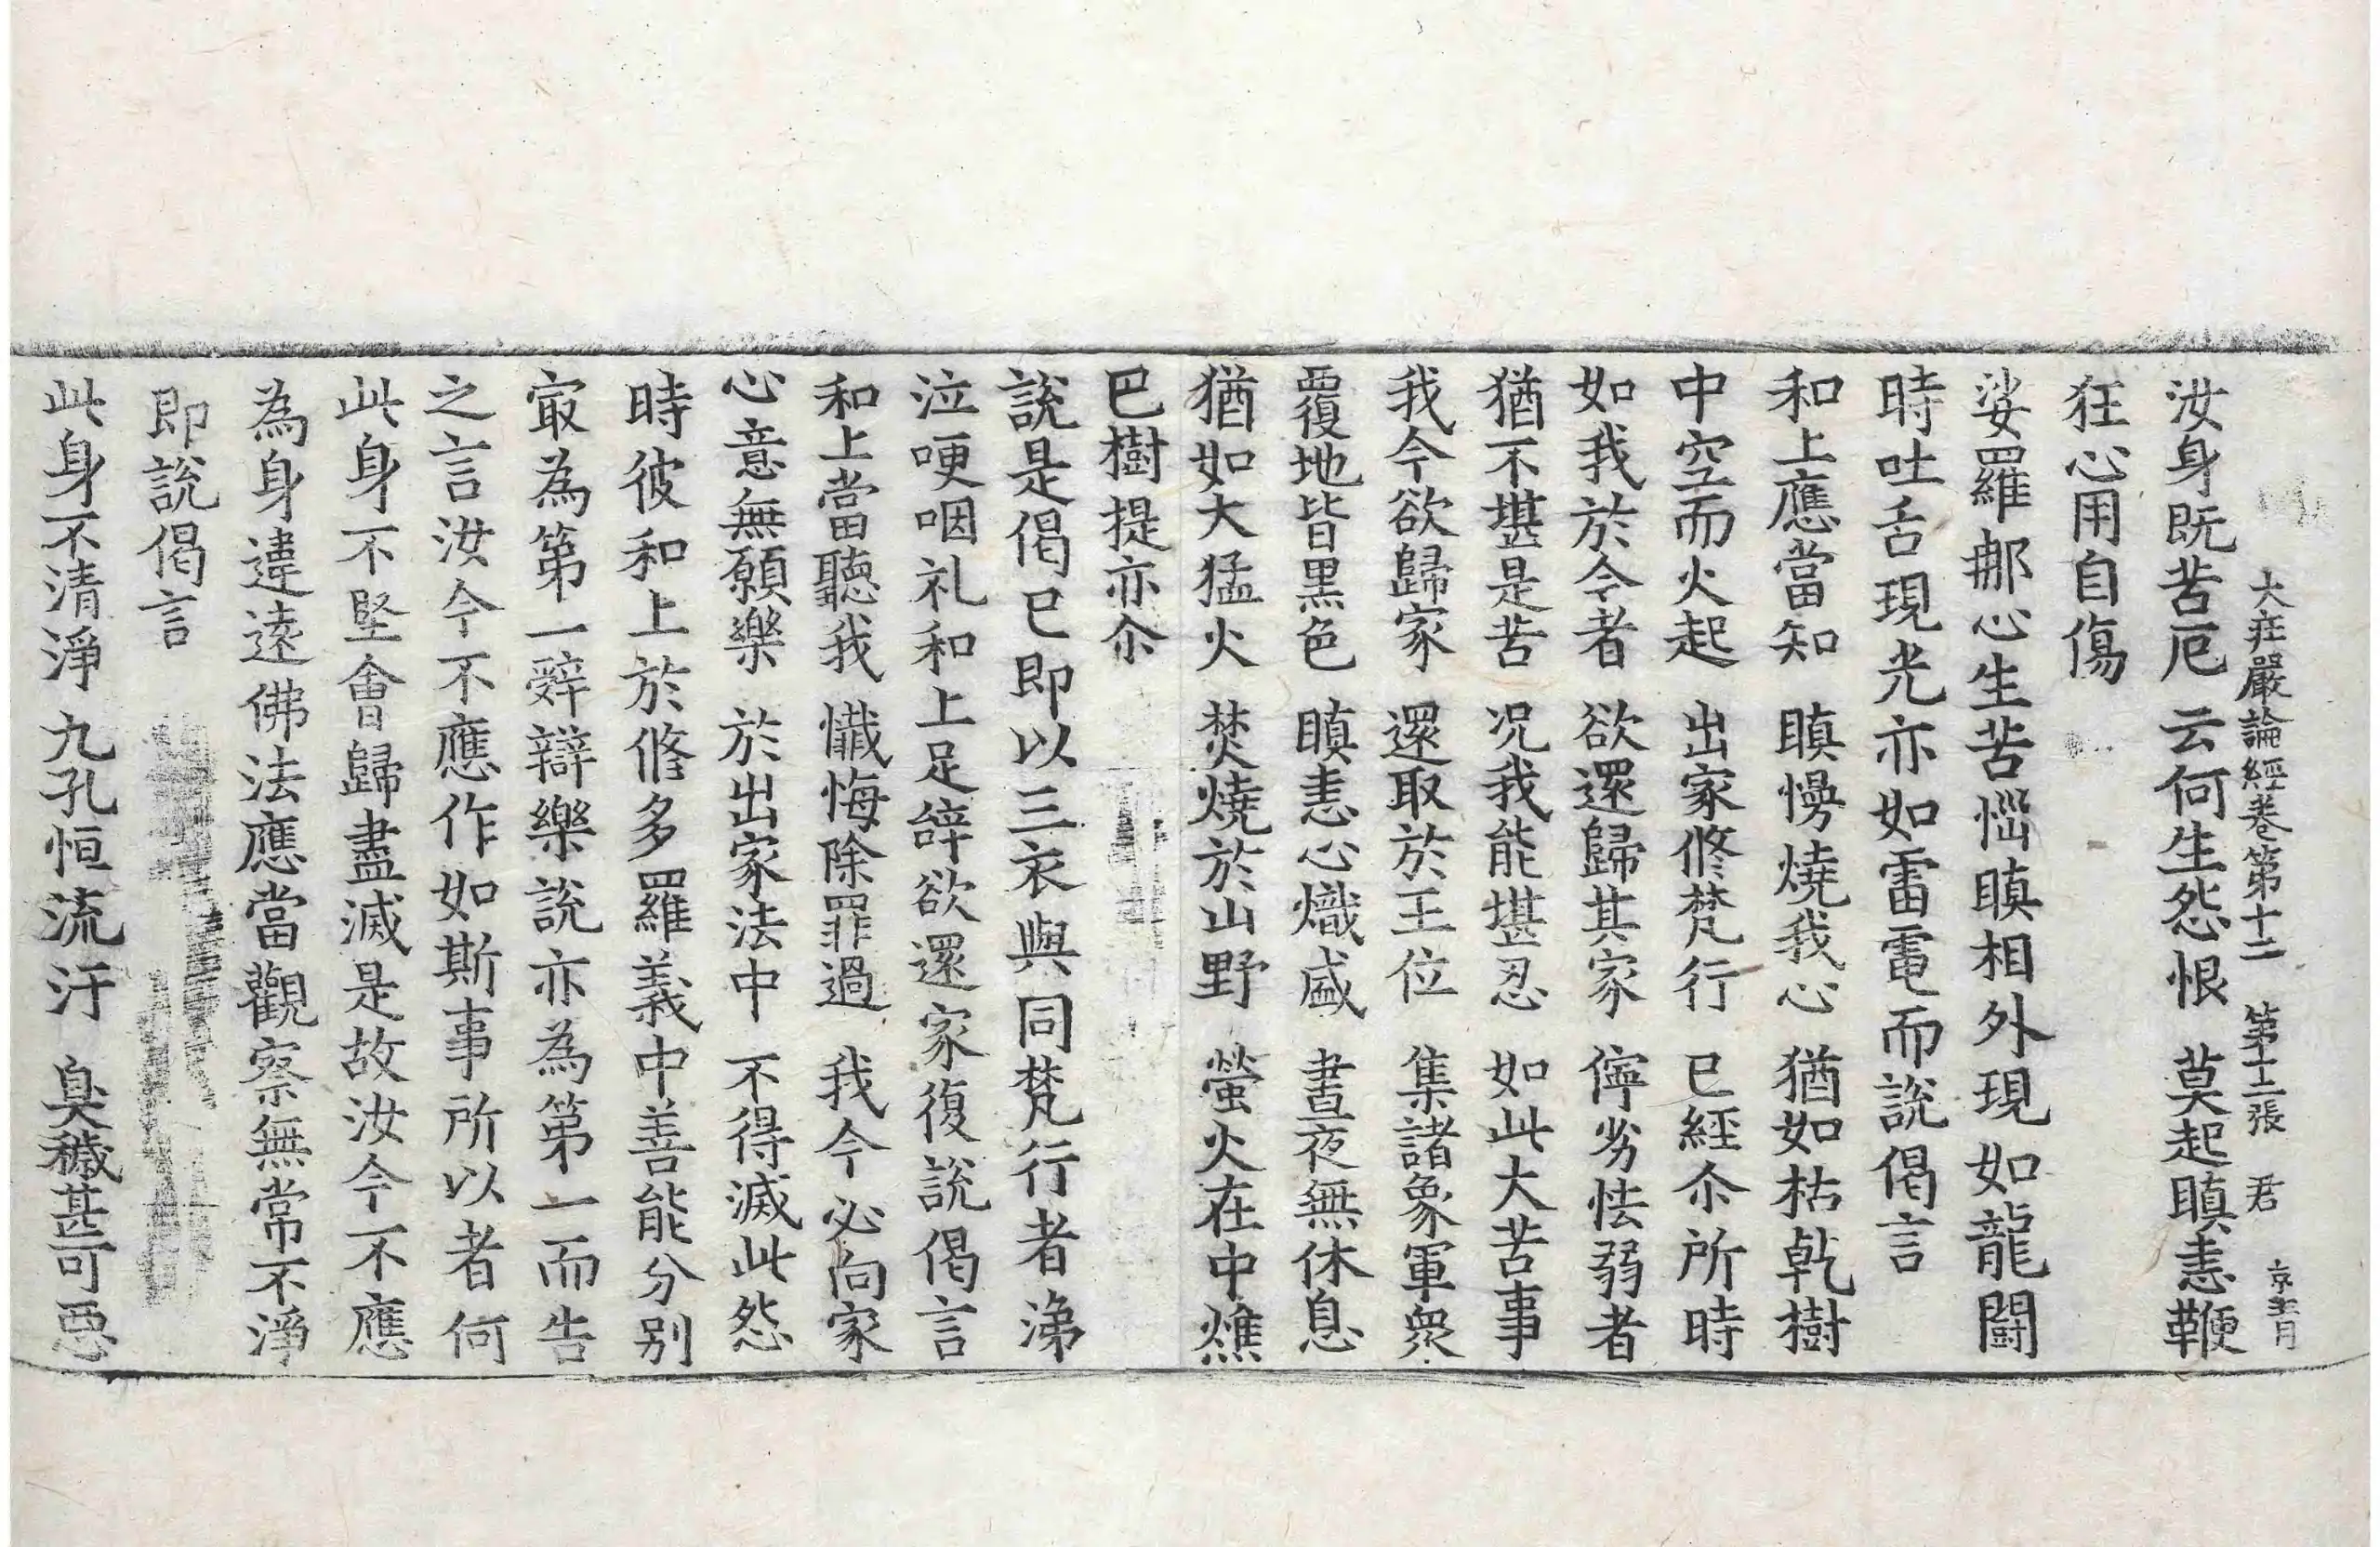 大莊嚴論經卷第十二　第十二張　君
汝身既苦厄　云何生怨恨　莫起瞋恚鞭
狂心用自傷
娑羅那心生苦惱瞋相外現如龍鬪
時吐舌現光亦如雷電而說偈言
和上應當知　瞋慢燒我心　猶如枯乹樹
中空而火起　出家修梵行　已經尒所時
如我於今者　欲還歸其家　儜劣怯弱者
猶不堪是苦　況我能堪忍　如此大苦事
我今欲歸家　還取於王位　集諸象軍衆
覆地皆黑色　瞋恚心熾盛　晝夜無休息
猶如大猛火　焚燒於山野　螢火在中燋
巴樹提亦尒
說是偈已即以三衣與同梵行者涕
泣哽咽礼和上足辝欲還家復說偈言
和上當聽我　懺悔除罪過　我今必向家
心意無願樂　於出家法中　不得滅此怨
時彼和上於修多羅義中善能分別
冣為第一辝辯樂說亦為第一而告
之言汝今不應作如斯事所以者何
此身不堅會歸盡滅是故汝今不應
為身違遠佛法應當觀察無常不淨
即說偈言
此身不清淨　九孔恒流汙　臭穢甚可惡